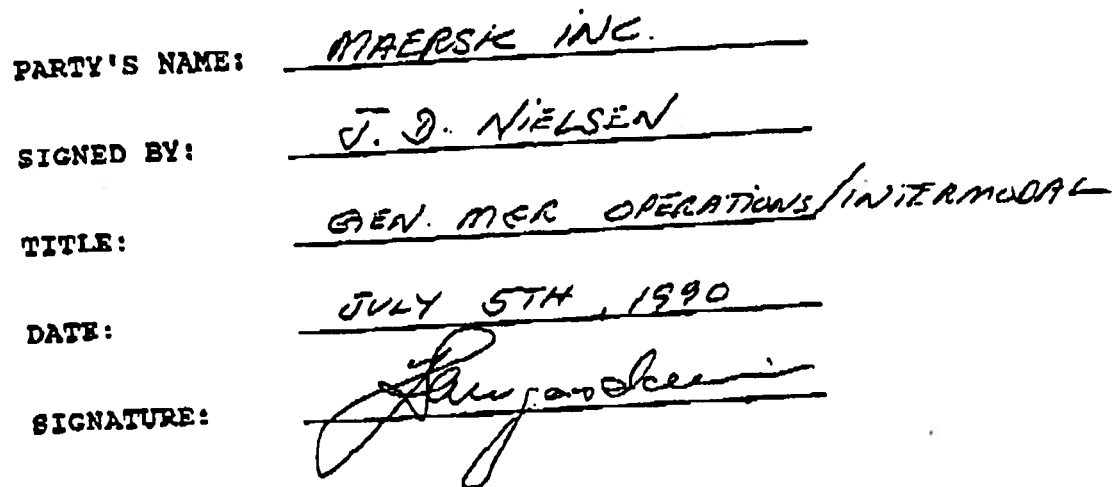 PARTY'S NAME: MAERSK INC.
SIGNED BY: J. D. NIELSEN
TITLE: GEN. MGR OPERATIONS/INTERMODAL
DATE: JULY 5TH, 1990
SIGNATURE: